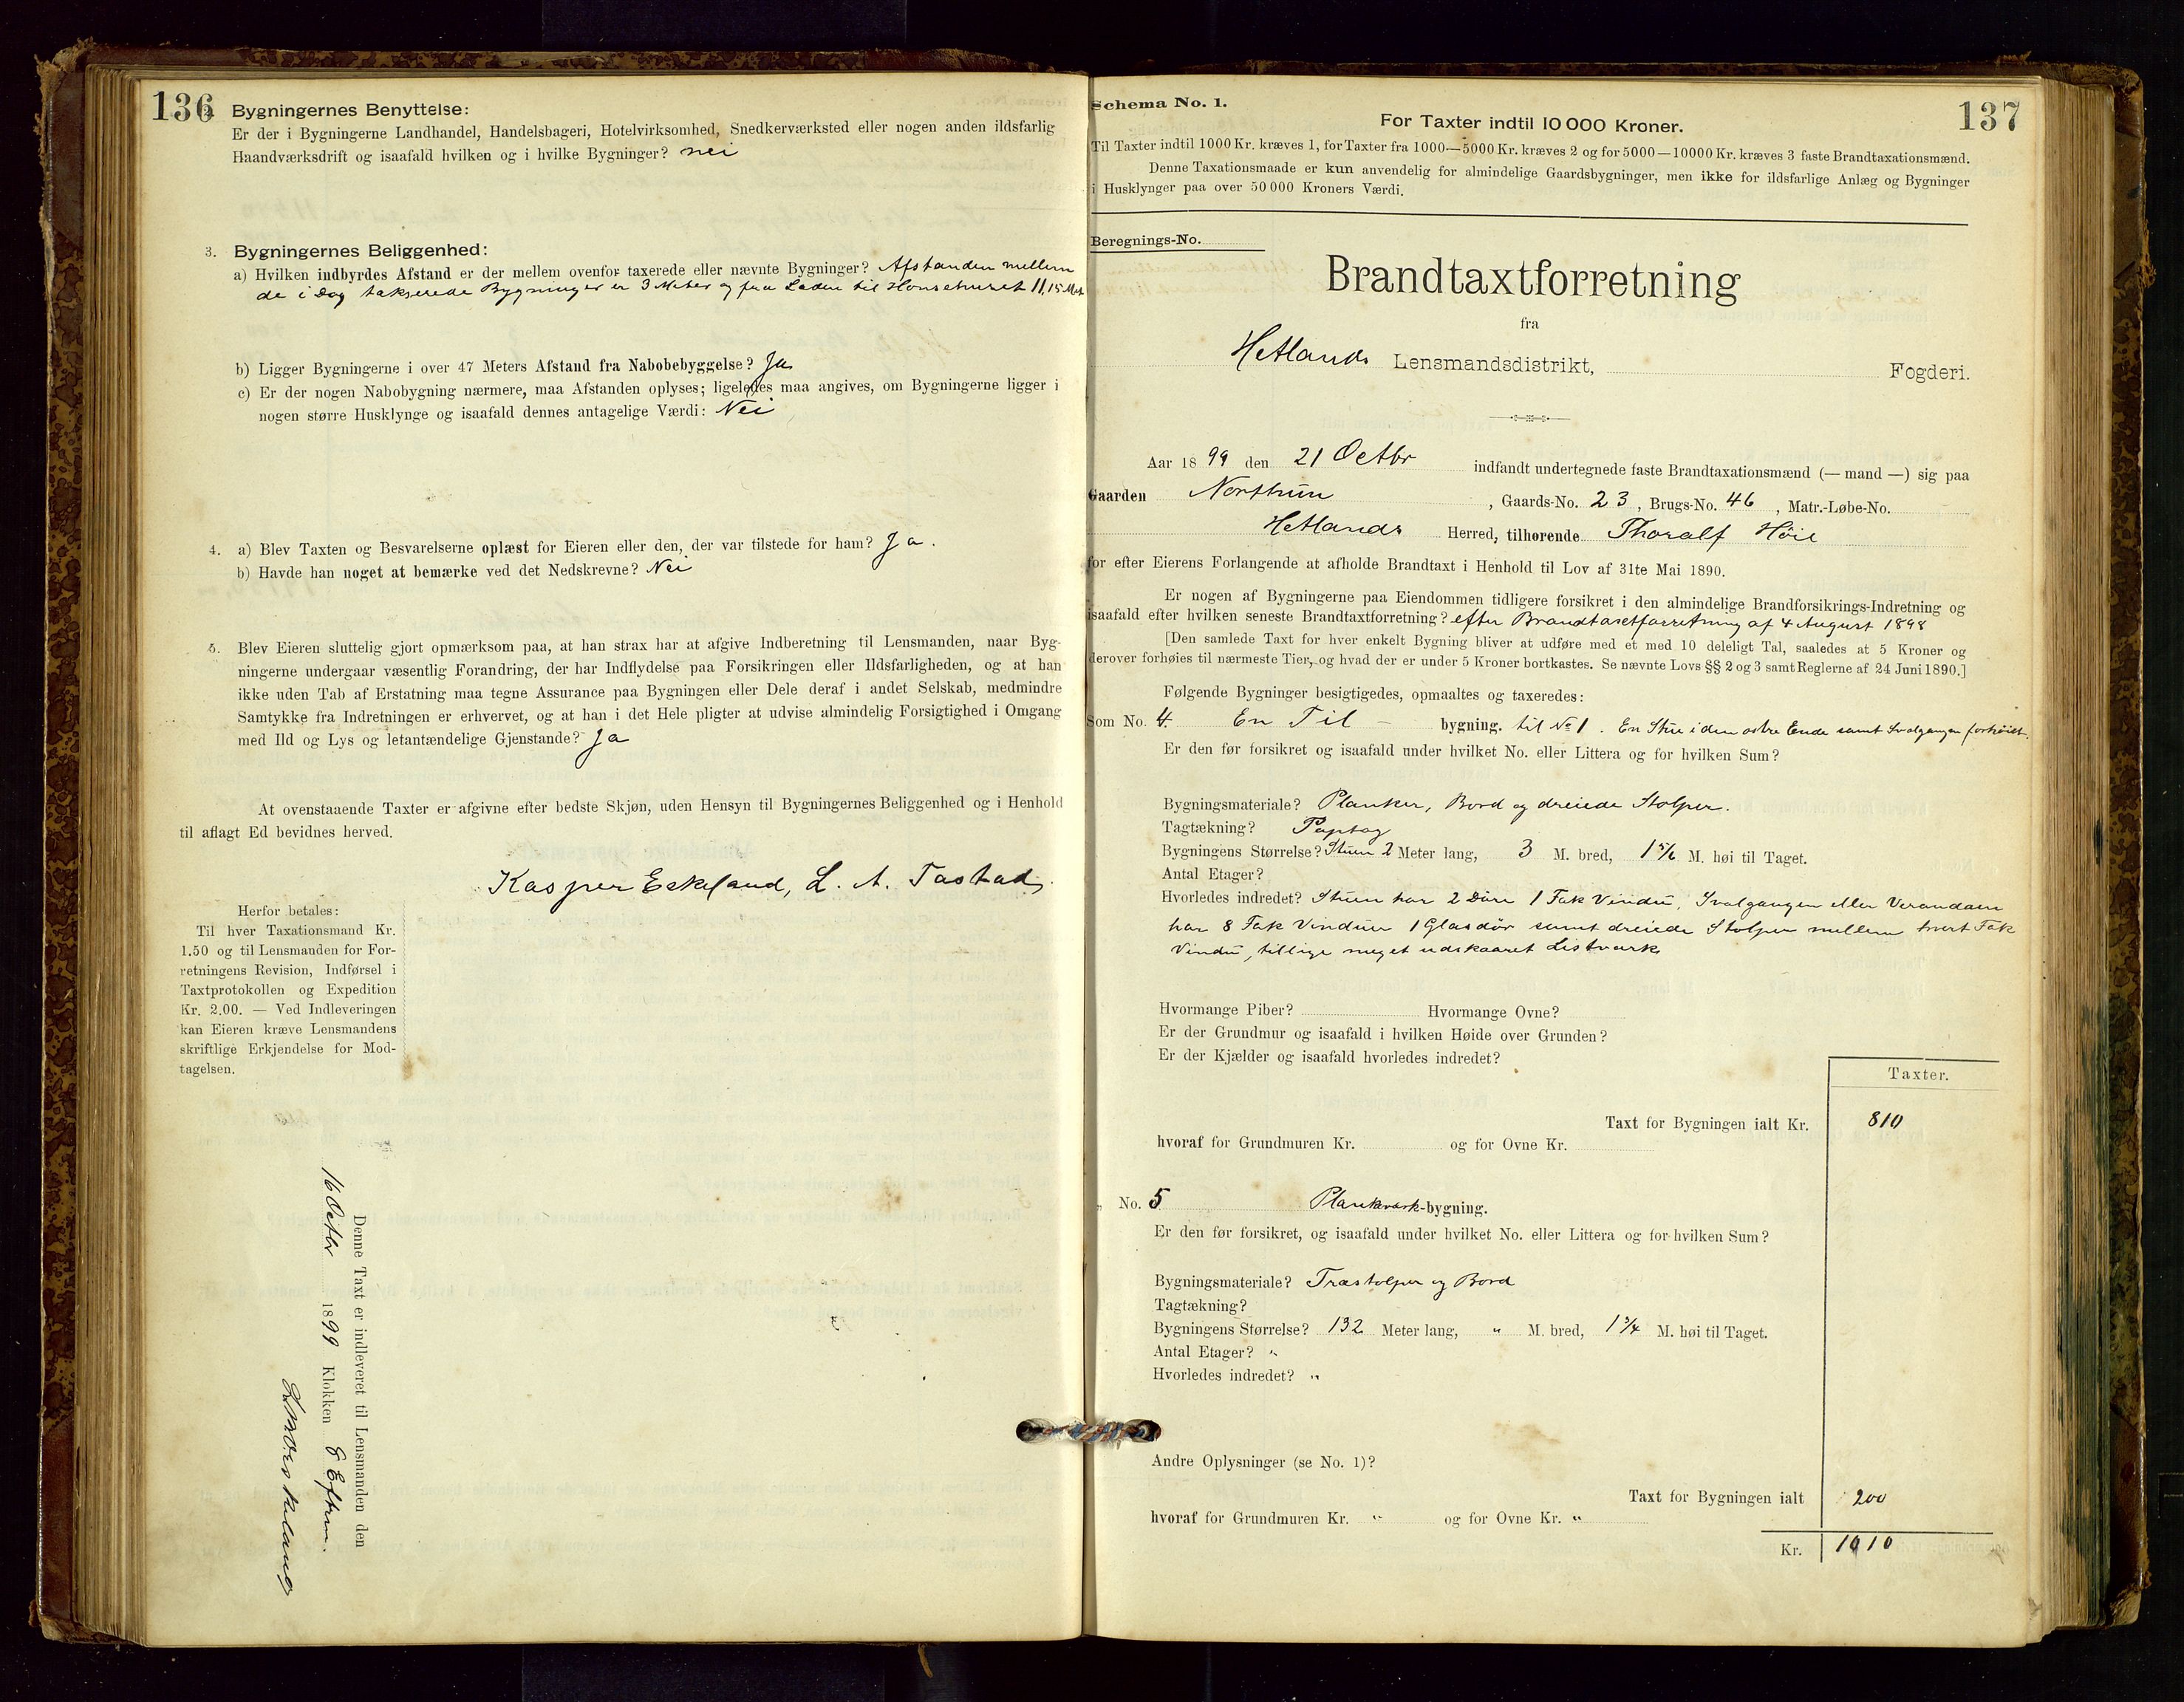 136
2. Bygningernes Benyttelse:
Er der i Bygningerne Landhandel, Handelsbageri, Hotelvirksomhed, Snedkerværksted eller nogen anden ildsfarlig
Haandværksdrift og isaafald hvilken og i hvilke Bygninger? nei
3. Bygningernes Beliggenhed:
a) Hvilken indbyrdes Afstand er der mellem ovenfor taxerede eller nævnte Bygninger? Afstanden mellem
de i Dag takserede Bygninger er 3 Meter og fra Laden til Hønsehuset 11,15 Met
b) Ligger Bygningerne i over 47 Meters Afstand fra Nabobebyggelse? Ja
c) Er der nogen Nabobygning nærmere, maa Afstanden oplyses; ligeledes maa angives, om Bygningerne ligger i
nogen større Husklynge og isaafald dennes antagelige Værdi: Nei
4. a) Blev Taxten og Besvarelserne oplæst for Eieren eller den, der var tilstede for ham? Ja.
b) Havde han noget at bemærke ved det Nedskrevne? Nei
5. Blev Eieren sluttelig gjort opmærksom paa, at han strax har at afgive Indberetning til Lensmanden, naar Byg-
ningerne undergaar væsentlig Forandring, der har Indflydelse paa Forsikringen eller Ildsfarligheden, og at han
ikke uden Tab af Erstatning maa tegne Assurance paa Bygningen eller Dele deraf i andet Selskab, medmindre
Samtykke fra Indretningen er erhvervet, og at han i det Hele pligter at udvise almindelig Forsigtighed i Omgang
med Ild og Lys og letantændelige Gjenstande? Ja
At ovenstaaende Taxter er afgivne efter bedste Skjøn, uden Hensyn til Bygningernes Beliggenhed og i Henhold
til aflagt Ed bevidnes herved.
Kasper Eskeland, L. A. Tastad.
Herfor betales:
Til hver Taxationsmand Kr.
1.50 og til Lensmanden for For-
retningens Revision, Indførsel i
Taxtprotokollen og Expedition
Kr. 2.00. — Ved Indleveringen
kan Eieren kræve Lensmandens
skriftlige Erkjendelse for Mod-
tagelsen.
Denne Taxt er indleveret til Lensmanden den
16 Octbr 1899 Klokken 8 Efterm.
137
Schema No. 1.
For Taxter indtil 10 000 Kroner.
Til Taxter indtil 1000 Kr. kræves 1, for Taxter fra 1000—5000 Kr. kræves 2 og for 5000—10000 Kr. kræves 3 faste Brandtaxationsmænd.
Denne Taxationsmaade er kun anvendelig for almindelige Gaardsbygninger, men ikke for ildsfarlige Anlæg og Bygninger
i Husklynger paa over 50 000 Kroners Værdi.
Beregnings-No.
Brandtaxtforretning
fra
Hetlands Lensmandsdistrikt, Fogderi.
Aar 1899 den 21 Octbr indfandt undertegnede faste Brandtaxationsmænd (— mand —) sig paa
Gaarden , Gaards-No. 23, Brugs-No. 46, Matr.-Løbe-No.
Hetlands Herred, tilhørende Thoralf Høie
for efter Eierens Forlangende at afholde Brandtaxt i Henhold til Lov af 31te Mai 1890.
Er nogen af Bygningerne paa Eiendommen tidligere forsikret i den almindelige Brandforsikrings-Indretning og
isaafald efter hvilken seneste Brandtaxtforretning? efter Brandtaxtforretning af 4 August 1898
[Den samlede Taxt for hver enkelt Bygning bliver at udføre med et med 10 deleligt Tal, saaledes at 5 Kroner og
derover forhøies til nærmeste Tier, og hvad der er under 5 Kroner bortkastes. Se nævnte Lovs §§ 2 og 3 samt Reglerne af 24 Juni 1890.]
Følgende Bygninger besigtigedes, opmaaltes og taxeredes:
Som No. 4. En Til - bygning. til No 1. En Stue i den østre Ende samt Svalgangen forhøiet.
Er den før forsikret og isaafald under hvilket No. eller Littera og for hvilken Sum?
Bygningsmateriale? Planker, Bord og dreiede Stolper.
Tagtækning? Paptag
Bygningens Størrelse? Stuen 2 Meter lang, 3 M. bred, 1 5/6 M. høi til Taget.
Antal Etager?
Hvorledes indredet? Stuen har 2 Døre 1 Fak Vindu, Svalgangen eller Verandaen
har 8 Fak Vinduer 1 Glasdør samt dreiede Stolper mellem hvert Fak
Vindu, tillige meget udskaaret Listværk
Hvormange Piber? Hvormange Ovne?
Er der Grundmur og isaafald i hvilken Høide over Grunden?
Er der Kjælder og isaafald hvorledes indredet?
Taxter.
Taxt for Bygningen ialt Kr. 810
hvoraf for Grundmuren Kr. og for Ovne Kr.
" No. 5 Plankværk-bygning.
Er den før forsikret, og isaafald under hvilket No. eller Littera og for hvilken Sum?
Bygningsmateriale? Træstolper og Bord
Tagtækning?
Bygningens Størrelse? 132 Meter lang, " M. bred, 1 3/4 M. høi til Taget.
Antal Etager? "
Hvorledes indredet? "
Andre Oplysninger (se No. 1)?
Taxt for Bygningen ialt 200
hvoraf for Grundmuren Kr. " og for Ovne Kr. "
Kr. 1010